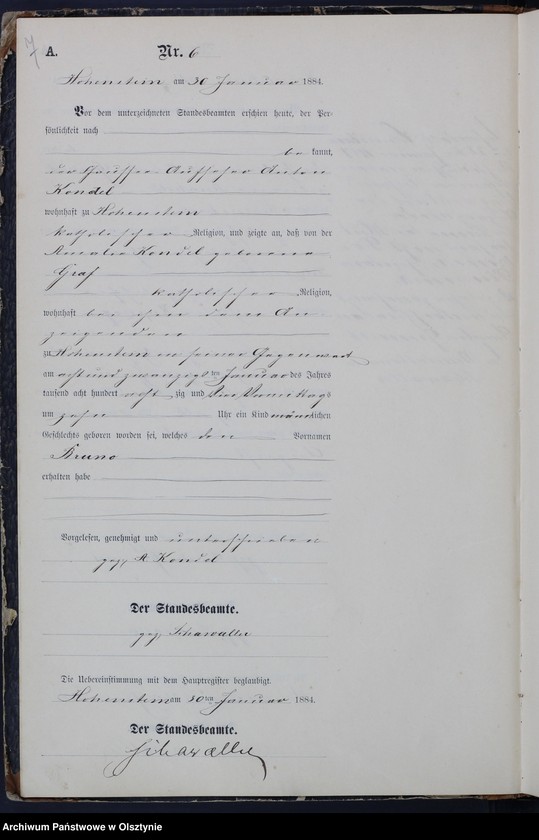 7
A. Nr. 6
Hohenstein am 30 Januar 1884.
Vor dem unterzeichneten Standesbeamten erschien heute, der Per-
sönlichkeit nach
be kannt,
der Chaussee Aufseher Anton
Kondel
wohnhaft zu Hohenstein
katholischer Religion, und zeigte an, daß von der
Amalie Kondel geborene
Graf
katholischer Religion,
wohnhaft bei ihm dem An
zeigenden
zu Hohenstein in seiner Gegenwart
am acht und zwanzigsten Januar des Jahres
tausend acht hundert acht zig und vier Vormittags
um zehn Uhr ein Kind männlichen
Geschlechts geboren worden sei, welches den Vornamen
Bruno
erhalten habe
Vorgelesen, genehmigt und unterschrieben
gez. A Kondel
Der Standesbeamte.
gez.
Die Uebereinstimmung mit dem Hauptregister beglaubigt.
Hohenstein am 30ten Januar 1884.
Der Standesbeamte.
Archiwum Państwowe w Olsztynie